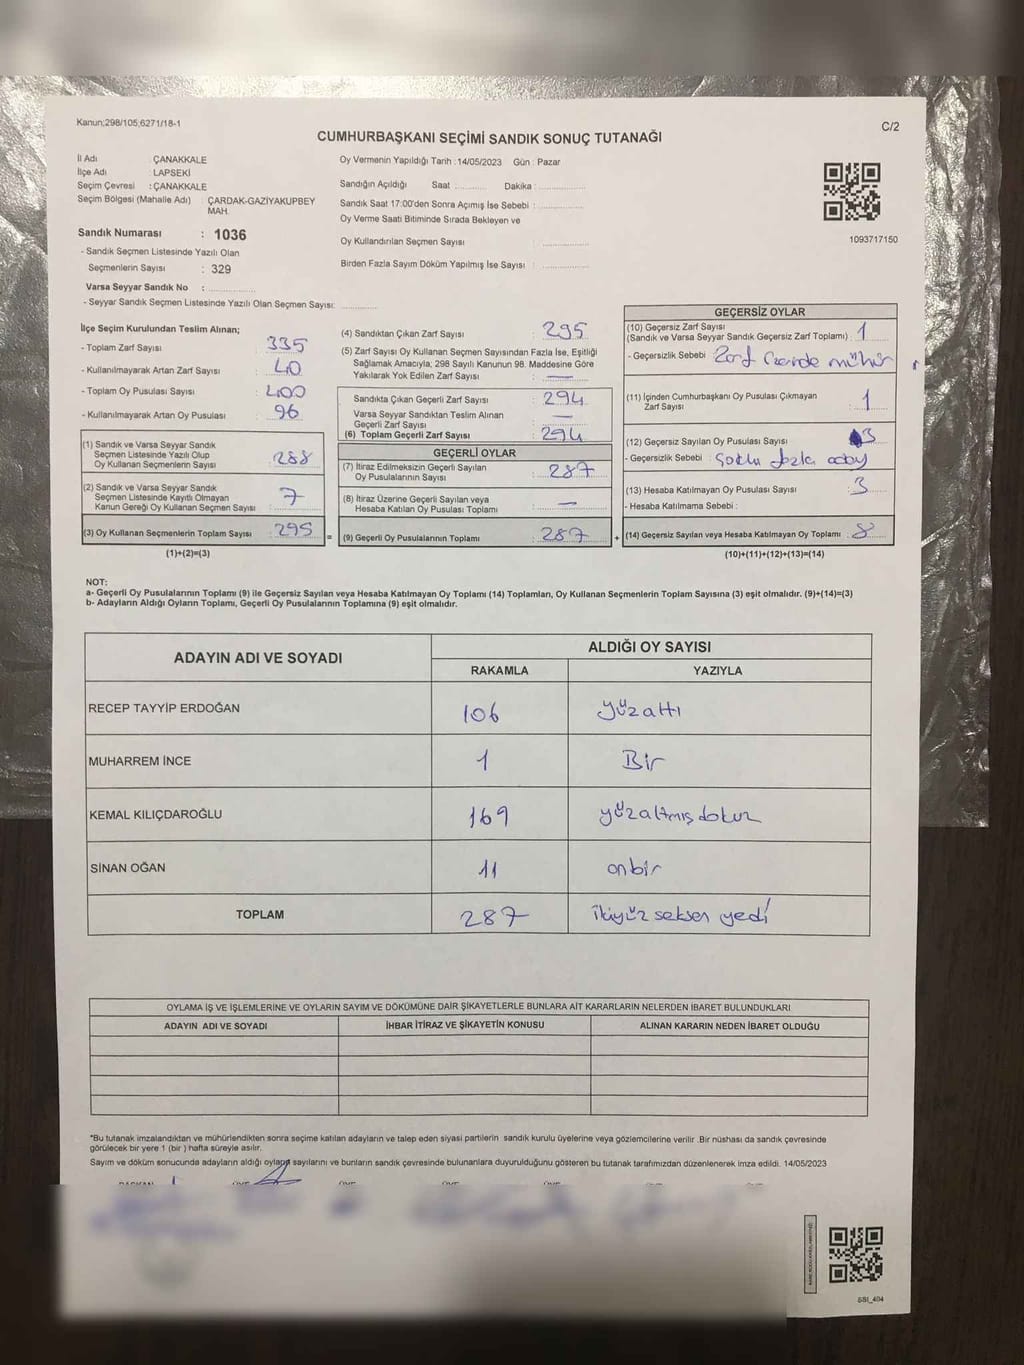 Kanun;298/105;6271/18-1
C/2
CUMHURBAŞKANI SEÇİMİ SANDIK SONUÇ TUTANAĞI
İl Adı : ÇANAKKALE
İlçe Adı : LAPSEKİ
Seçim Çevresi : ÇANAKKALE
Seçim Bölgesi (Mahalle Adı) : ÇARDAK-GAZİYAKUPBEY MAH.
Sandık Numarası : 1036
- Sandık Seçmen Listesinde Yazılı Olan
Seçmenlerin Sayısı : 329
Varsa Seyyar Sandık No :
- Seyyar Sandık Seçmen Listesinde Yazılı Olan Seçmen Sayısı:
Oy Vermenin Yapıldığı Tarih :14/05/2023 Gün : Pazar
Sandığın Açıldığı Saat Dakika :
Sandık Saat 17:00'den Sonra Açımış İse Sebebi :
Oy Verme Saati Bitiminde Sırada Bekleyen ve
Oy Kullandırılan Seçmen Sayısı :
Birden Fazla Sayım Döküm Yapılmış İse Sayısı :
1093717150
İlçe Seçim Kurulundan Teslim Alınan;
- Toplam Zarf Sayısı : 335
- Kullanılmayarak Artan Zarf Sayısı : 40
- Toplam Oy Pusulası Sayısı : 400
- Kullanılmayarak Artan Oy Pusulası : 96
(1) Sandık ve Varsa Seyyar Sandık
Seçmen Listesinde Yazılı Olup
Oy Kullanan Seçmenlerin Sayısı : 288
(2) Sandık ve Varsa Seyyar Sandık
Seçmen Listesinde Kayıtlı Olmayan
Kanun Gereği Oy Kullanan Seçmen Sayısı : 7
(3) Oy Kullanan Seçmenlerin Toplam Sayısı : 295 =
(1)+(2)=(3)
(4) Sandıktan Çıkan Zarf Sayısı : 295
(5) Zarf Sayısı Oy Kullanan Seçmen Sayısından Fazla İse, Eşitliği
Sağlamak Amacıyla, 298 Sayılı Kanunun 98. Maddesine Göre
Yakılarak Yok Edilen Zarf Sayısı : —
Sandıkta Çıkan Geçerli Zarf Sayısı : 294
Varsa Seyyar Sandıktan Teslim Alınan
Geçerli Zarf Sayısı : —
(6) Toplam Geçerli Zarf Sayısı : 294
GEÇERLİ OYLAR
(7) İtiraz Edilmeksizin Geçerli Sayılan
Oy Pusulalarının Sayısı : 287
(8) İtiraz Üzerine Geçerli Sayılan veya
Hesaba Katılan Oy Pusulası Toplamı : —
(9) Geçerli Oy Pusulalarının Toplamı : 287 +
GEÇERSİZ OYLAR
(10) Geçersiz Zarf Sayısı
(Sandık ve Varsa Seyyar Sandık Geçersiz Zarf Toplamı) : 1
- Geçersizlik Sebebi : Zarf üzerinde mühür
(11) İçinden Cumhurbaşkanı Oy Pusulası Çıkmayan
Zarf Sayısı : 1
(12) Geçersiz Sayılan Oy Pusulası Sayısı : 3
- Geçersizlik Sebebi :
(13) Hesaba Katılmayan Oy Pusulası Sayısı : 3
- Hesaba Katılmama Sebebi :
(14) Geçersiz Sayılan veya Hesaba Katılmayan Oy Toplamı : 8
(10)+(11)+(12)+(13)=(14)
NOT:
a- Geçerli Oy Pusulalarının Toplamı (9) ile Geçersiz Sayılan veya Hesaba Katılmayan Oy Toplamı (14) Toplamları, Oy Kullanan Seçmenlerin Toplam Sayısına (3) eşit olmalıdır. (9)+(14)=(3)
b- Adayların Aldığı Oyların Toplamı, Geçerli Oy Pusulalarının Toplamına (9) eşit olmalıdır.
ADAYIN ADI VE SOYADI ALDIĞI OY SAYISI
RAKAMLA YAZIYLA
RECEP TAYYİP ERDOĞAN 106 yüzaltı
MUHARREM İNCE 1 Bir
KEMAL KILIÇDAROĞLU 169 yüzaltmışdokuz
SİNAN OĞAN 11 onbir
TOPLAM 287 ikiyüz seksen yedi
OYLAMA İŞ VE İŞLEMLERİNE VE OYLARIN SAYIM VE DÖKÜMÜNE DAİR ŞİKAYETLERLE BUNLARA AİT KARARLARIN NELERDEN İBARET BULUNDUKLARI
ADAYIN ADI VE SOYADI İHBAR İTİRAZ VE ŞİKAYETİN KONUSU ALINAN KARARIN NEDEN İBARET OLDUĞU
*Bu tutanak imzalandıktan ve mühürlendikten sonra seçime katılan adayların ve talep eden siyasi partilerin sandık kurulu üyelerine veya gözlemcilerine verilir .Bir nüshası da sandık çevresinde
görülecek bir yere 1 (bir ) hafta süreyle asılır.
Sayım ve döküm sonucunda adayların aldığı oyların sayılarını ve bunların sandık çevresinde bulunanlara duyurulduğunu gösteren bu tutanak tarafımızdan düzenlenerek imza edildi. 14/05/2023
SSI_404